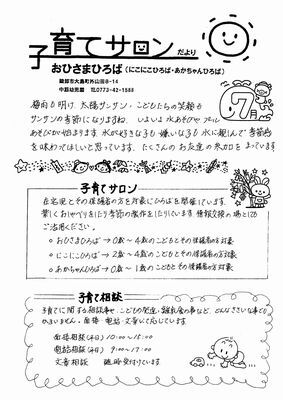 子育てサロン だより
おひさまひろば(にこにこひろば・あかちゃんひろば)
綾部市大島町外山田8-14
中筋幼児園 TEL 0773-42-1588
7月
梅雨も明け、太陽サンサン・こどもたちの笑顔も
サンサンの季節になりますね。いよいよ水あそびやプール
あそびが始まります。水が好きな子も嫌いな子も水に親しんで季節感
を味わってほしいと思っています。たくさんのお友達の参加をまっています
子育てサロン
在宅児とその保護者の方を対象にひろばを開催しています。
楽しくおしゃべりをしたり季節の製作をしたりしています。情報交換の場としても
ご活用ください。
・おひさまひろば→0歳~4歳のこどもとその保護者の方対象
・にこにこひろば→2歳~4歳のこどもとその保護者の方対象
・あかちゃんひろば→0歳~1歳のこどもとその保護者の方対象
子育て相談
子育てに関する相談事や、こどもの発達・離乳食の事など、どんなささいな事でも
かまいません。面接・電話・文書にて応じています
面接相談(平日) 10:00~15:00
電話相談(平日) 9:00~17:00
文書相談 随時受付けています